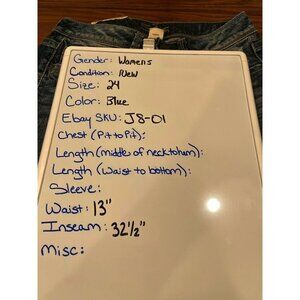 Gender: Womens
Condition: New
Size: 24
Color: Blue
Ebay SKU: J8-01
Chest (Pit to Pit):
Length (middle of neck to hem):
Length (Waist to bottom):
Sleeve:
Waist: 13"
Inseam: 32½"
Misc: